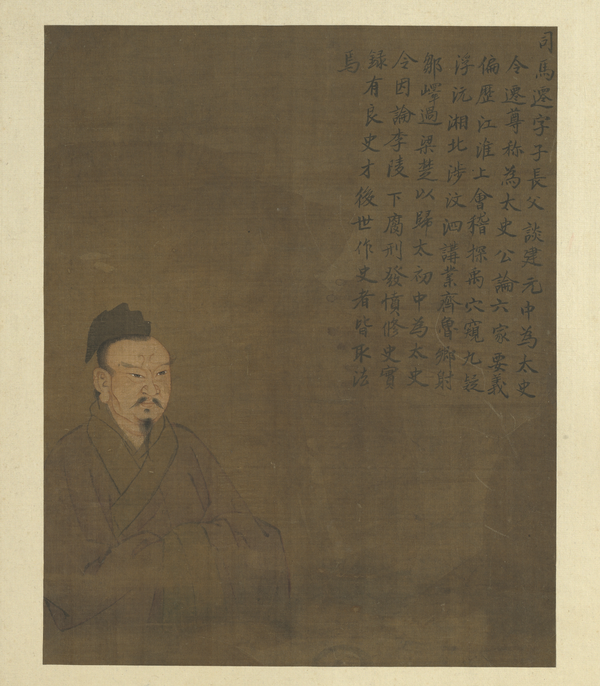 司馬遷字子長父談建元中為太史
令遷尊称為太史公論六家要義
偏歷江淮上會稽探禹穴窺九疑
浮沅湘北涉汶泗講業齊魯鄉射
鄒嶧過梁楚以歸太初中為太史
令因論李陵下腐刑發憤修史實
錄有良史才後世作史者皆取法
焉